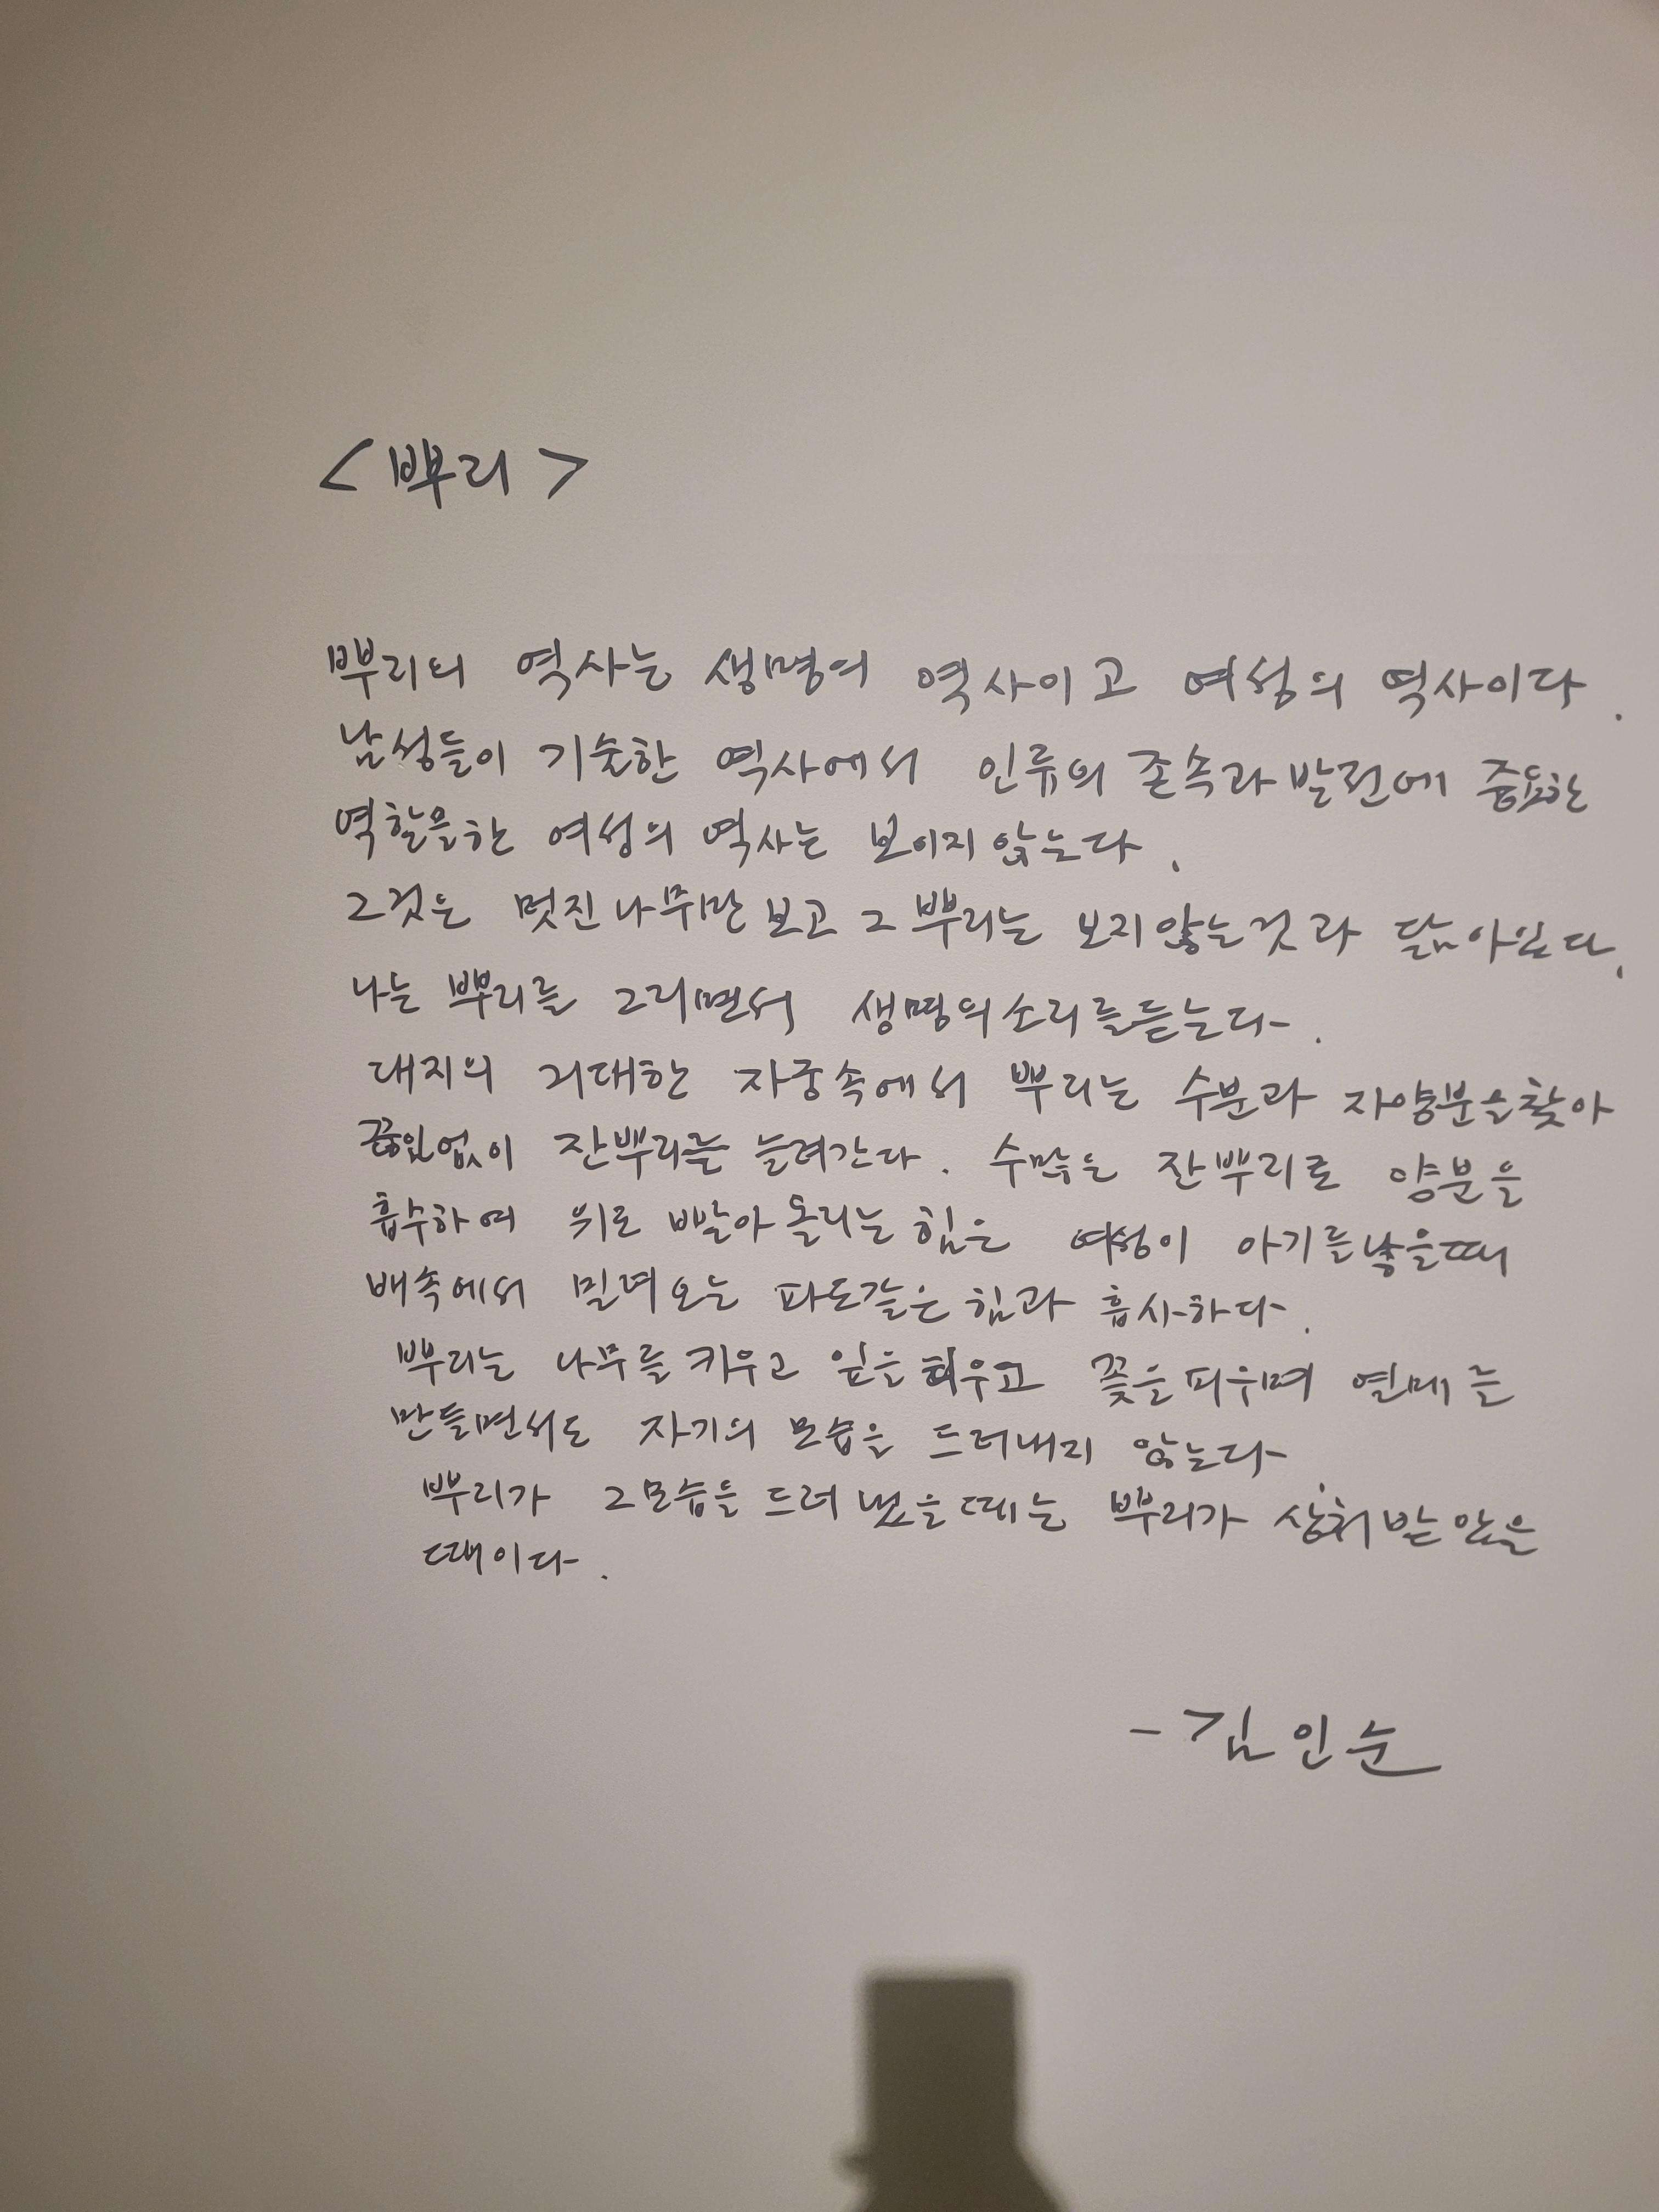 <뿌리>
뿌리의 역사는 생명의 역사이고 여성의 역사이다.
남성들이 기술한 역사에서 인류의 존속과 발전에 중요한
역할을한 여성의 역사는 보이지 않는다.
그것은 멋진 나무만 보고 그 뿌리는 보지않는것과 닮아있다.
나는 뿌리를 그리면서 생명의 소리를듣는다.
대지의 거대한 자궁속에서 뿌리는 수분과 자양분을찾아
끊임없이 잔뿌리를 늘려간다. 수많은 잔뿌리로 양분을
흡수하여 위로 빨아 올리는 힘은 여성이 아기를낳을때
배속에서 밀려오는 파도같은 힘과 흡사하다.
뿌리는 나무를 키우고 잎을 틔우고 꽃을 피우며 열매를
만들면서도 자기의 모습을 드러내지 않는다.
뿌리가 그모습을 드러냈을때는 뿌리가 상처받았을
때이다.
- 김인순